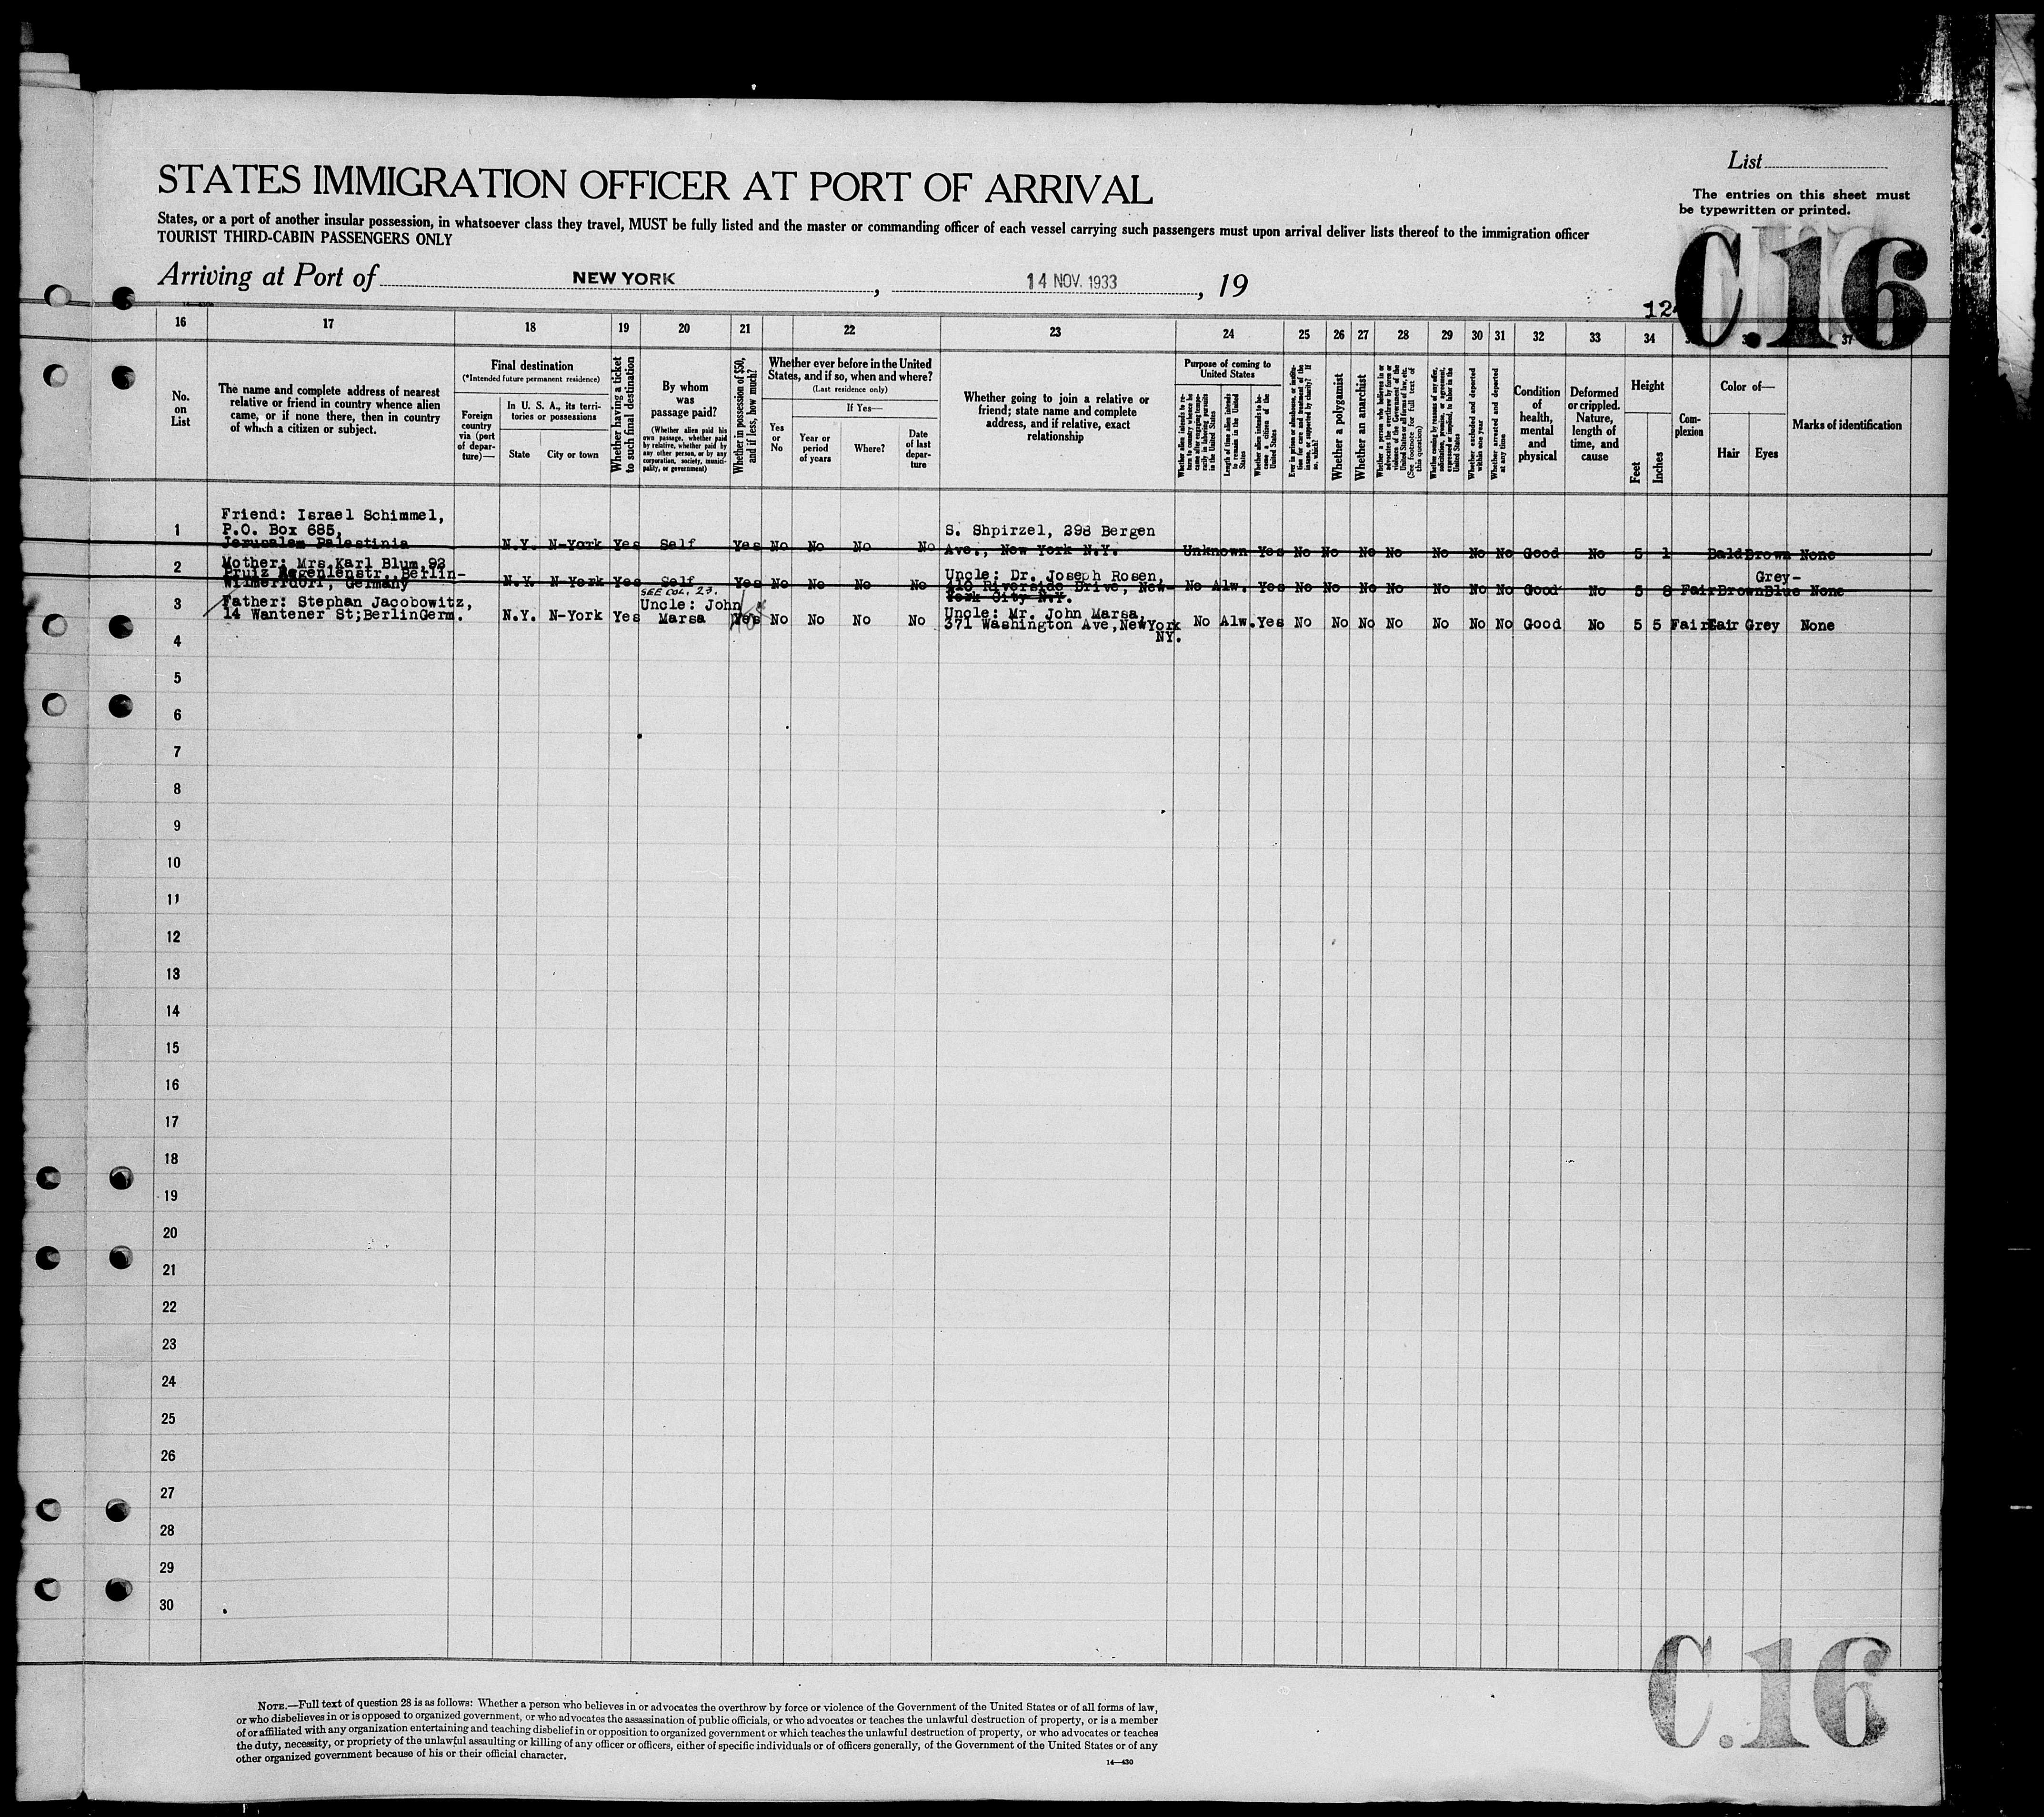 List
The entries on this sheet must
be typewritten or printed.
STATES IMMIGRATION OFFICER AT PORT OF ARRIVAL
States, or a port of another insular possession, in whatsoever class they travel, MUST be fully listed and the master or commanding officer of each vessel carrying such passengers must upon arrival deliver lists thereof to the immigration officer
TOURIST THIRD-CABIN PASSENGERS ONLY
C.16
Arriving at Port of NEW YORK, 14 NOV. 1933, 19
12
16 17 18 19 20 21 22 23 24 25 26 27 28 29 30 31 32 33 34 37
No.
on
List
The name and complete address of nearest
relative or friend in country whence alien
came, or if none there, then in country
of which a citizen or subject.
Final destination
(*Intended future permanent residence)
Foreign
country
via (port
of depar-
ture)—
In U. S. A., its terri-
tories or possessions
State City or town
Whether having a ticket
to such final destination
By whom
was
passage paid?
(Whether alien paid his
own passage, whether paid
by relative, whether paid by
any other person, or by any
corporation, society, munici-
pality, or government)
Whether in possession of $50,
and if less, how much?
Whether ever before in the United
States, and if so, when and where?
(Last residence only)
Yes
or
No
If Yes—
Year or
period
of years
Where?
Date
of last
depar-
ture
Whether going to join a relative or
friend; state name and complete
address, and if relative, exact
relationship
Purpose of coming to
United States
Whether alien intends to re-
turn to country whence he
came after engaging tempo-
rarily in laboring pursuits
in the United States
Length of time alien intends
to remain in the United
States
Whether alien intends to be-
come a citizen of the
United States
Ever in prison or almshouse, or institu-
tion for care and treatment of the
insane, or supported by charity? If
so, which?
Whether a polygamist
Whether an anarchist
Whether a person who believes in or
advocates the overthrow by force or
violence of the Government of the
United States or all forms of law, etc.
(See footnote for full text of
this question)
Whether coming by reasons of any offer,
solicitation, promise, or agreement,
expressed or implied, to labor in the
United States
Whether excluded and deported
within one year
Whether arrested and deported
at any time
Condition
of
health,
mental
and
physical
Deformed
or crippled.
Nature,
length of
time, and
cause
Height
Feet Inches
Com-
plexion
Color of—
Hair Eyes
Marks of identification
1 Friend: Israel Schimmel,
P.O. Box 685,
Jerusalem Palestinia N.Y. N-York Yes Self Yes No No No No S. Shpirzel, 398 Bergen
Ave., New York N.Y. Unknown Yes No No No No No No No Good No 5 1 Bald Brown None
2 Mother: Mrs. Karl Blum, 93
Berlin-
Wilmersdorf, Germany N.Y. N-York Yes Self Yes No No No No Uncle: Dr. Joseph Rosen,
410 Riverside Drive, New-
York City N.Y. No Alw. Yes No No No No No No No Good No 5 8 Fair Brown Grey-
Blue None
SEE COL. 23.
3 Father: Stephan Jacobowitz,
14 Wantener St;BerlinGerm. N.Y. N-York Yes Uncle: John
Marsa Yes No No No No Uncle: Mr. John Marsa,
371 Washington Ave,NewYork
NY. No Alw. Yes No No No No No No No Good No 5 5 Fair Fair Grey None
4
5
6
7
8
9
10
11
12
13
14
15
16
17
18
19
20
21
22
23
24
25
26
27
28
29
30
NOTE.—Full text of question 28 is as follows: Whether a person who believes in or advocates the overthrow by force or violence of the Government of the United States or of all forms of law,
or who disbelieves in or is opposed to organized government, or who advocates the assassination of public officials, or who advocates or teaches the unlawful destruction of property, or is a member
of or affiliated with any organization entertaining and teaching disbelief in or opposition to organized government or which teaches the unlawful destruction of property, or who advocates or teaches
the duty, necessity, or propriety of the unlawful assaulting or killing of any officer or officers, either of specific individuals or of officers generally, of the Government of the United States or of any
other organized government because of his or their official character.
14—430
C.16